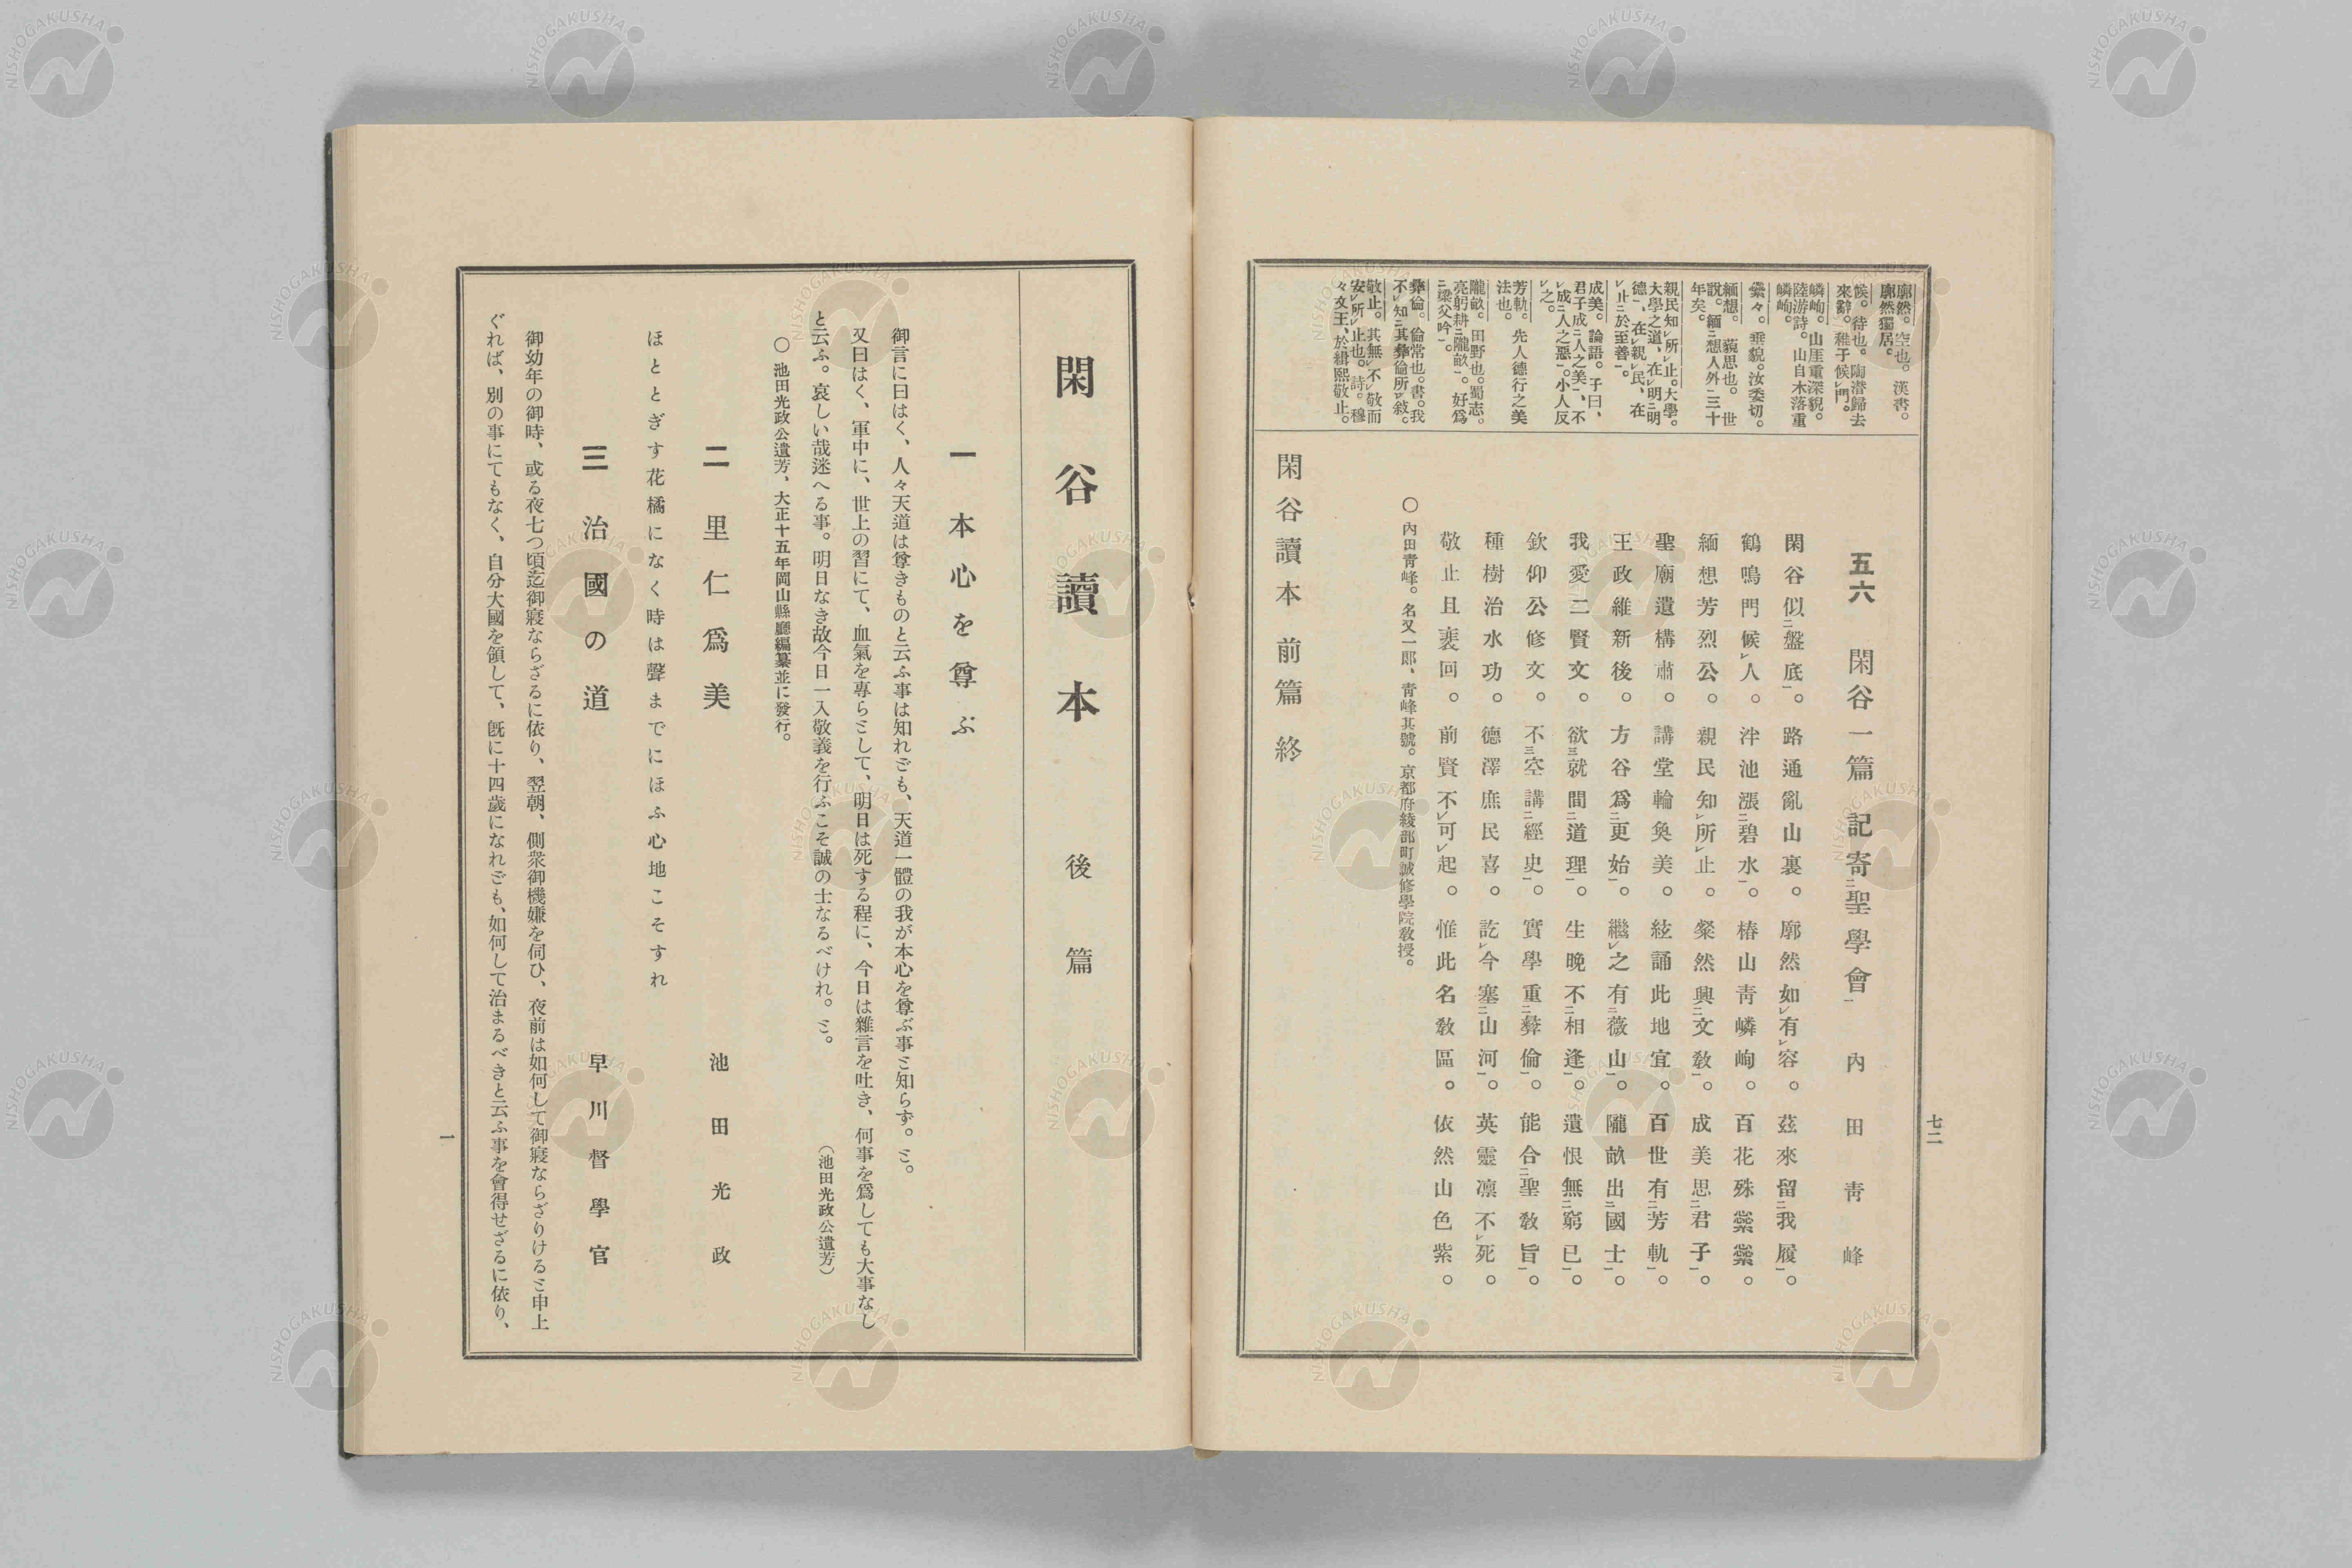 七二
廓然。空也。漢書。
廓然獨居。
候。待也。陶潛歸去
來辭。稚子候レ門。
嶙峋。山厓重深貌。
陸游詩。山自木落重
嶙峋。
蘂々。垂貌。汝委切。
緬想。藐思也。世
說。緬二想人外一三十
年矣。
親民知レ所レ止。大學。
大學之道、在レ明二明
德一、在レ親レ民、在
レ止二於至善一。
成美。論語。子曰、
君子成二人之美一、不
レ成二人之惡一。小人反
レ之。
芳軌。先人德行之美
法也。
隴畝。田野也。蜀志。
亮躬耕二隴畝一。好爲
二梁父吟一。
彝倫。倫常也。書。我
不レ知二其彝倫所レ敍。
敬止。其無レ不レ敬而
安レ所レ止也。詩。穆
々文王、於緝熙敬止。
五六 閑谷一篇 記寄二聖學會一 內田靑峰
閑谷似二盤底一。路通亂山裏。廓然如レ有レ容。茲來留二我履一。
鶴鳴門候レ人。泮池漲二碧水一。椿山靑嶙峋。百花殊蘂蘂。
緬想芳烈公。親民知レ所レ止。粲然興二文敎一。成美思二君子一。
聖廟遺構肅。講堂輪奐美。絃誦此地宜。百世有二芳軌一。
王政維新後。方谷爲二更始一。繼レ之有二薇山一。隴畝出二國士一。
我愛二賢文。欲三就間二道理一。生晚不二相逢一。遺恨無二窮已一。
欽仰公修文。不三空講二經史一。實學重二彝倫一。能合二聖敎旨一。
種樹治水功。德澤庶民喜。訖レ今塞二山河一。英靈凛不レ死。
敬止且裵回。前賢不レ可レ起。惟此名敎區。依然山色紫。
〇內田靑峰。名又一郞、靑峰其號。京都府綾部町誠修學院敎授。
閑谷讀本 前篇 終
閑谷讀本 後篇
一 本心を尊ぶ
御言に曰はく、人々天道は尊きものと云ふ事は知れども、天道一體の我が本心を尊ぶ事ミ知らず。ミ。
又曰はく、軍中に、世上の習にて、血氣を專らミして、明日は死する程に、今日は雜言を吐き、何事を爲しても大事なし
と云ふ。哀しい哉迷へる事。明日なき故今日一入敬義を行ふこそ誠の士なるべけれ。ミ。 （池田光政公遺芳）
〇池田光政公遺芳、大正十五年岡山縣廳編纂並に發行。
二 里仁爲美 池田光政
ほととぎす花橘になく時は聲までにほふ心地こそすれ
三 治國の道 早川督學官
御幼年の御時、或る夜七つ頃迄御寢ならざるに依り、翌朝、側衆御機嫌を伺ひ、夜前は如何して御寢ならざりけるミ申上
ぐれば、別の事にてもなく、自分大國を領して、旣に十四歲になれども、如何して治まるべきと云ふ事を會得せざるに依り、
一